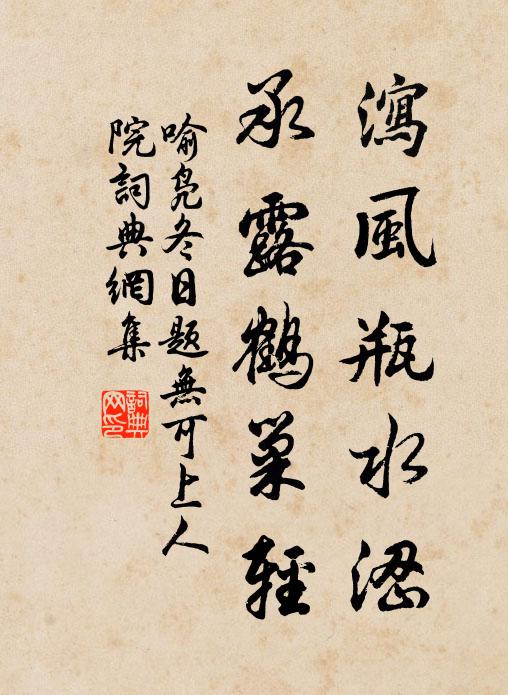 瀉風瓶水澀
承露鶴巢輕
喻鳧冬日題無可上人
院詞典網集
詞典
网印